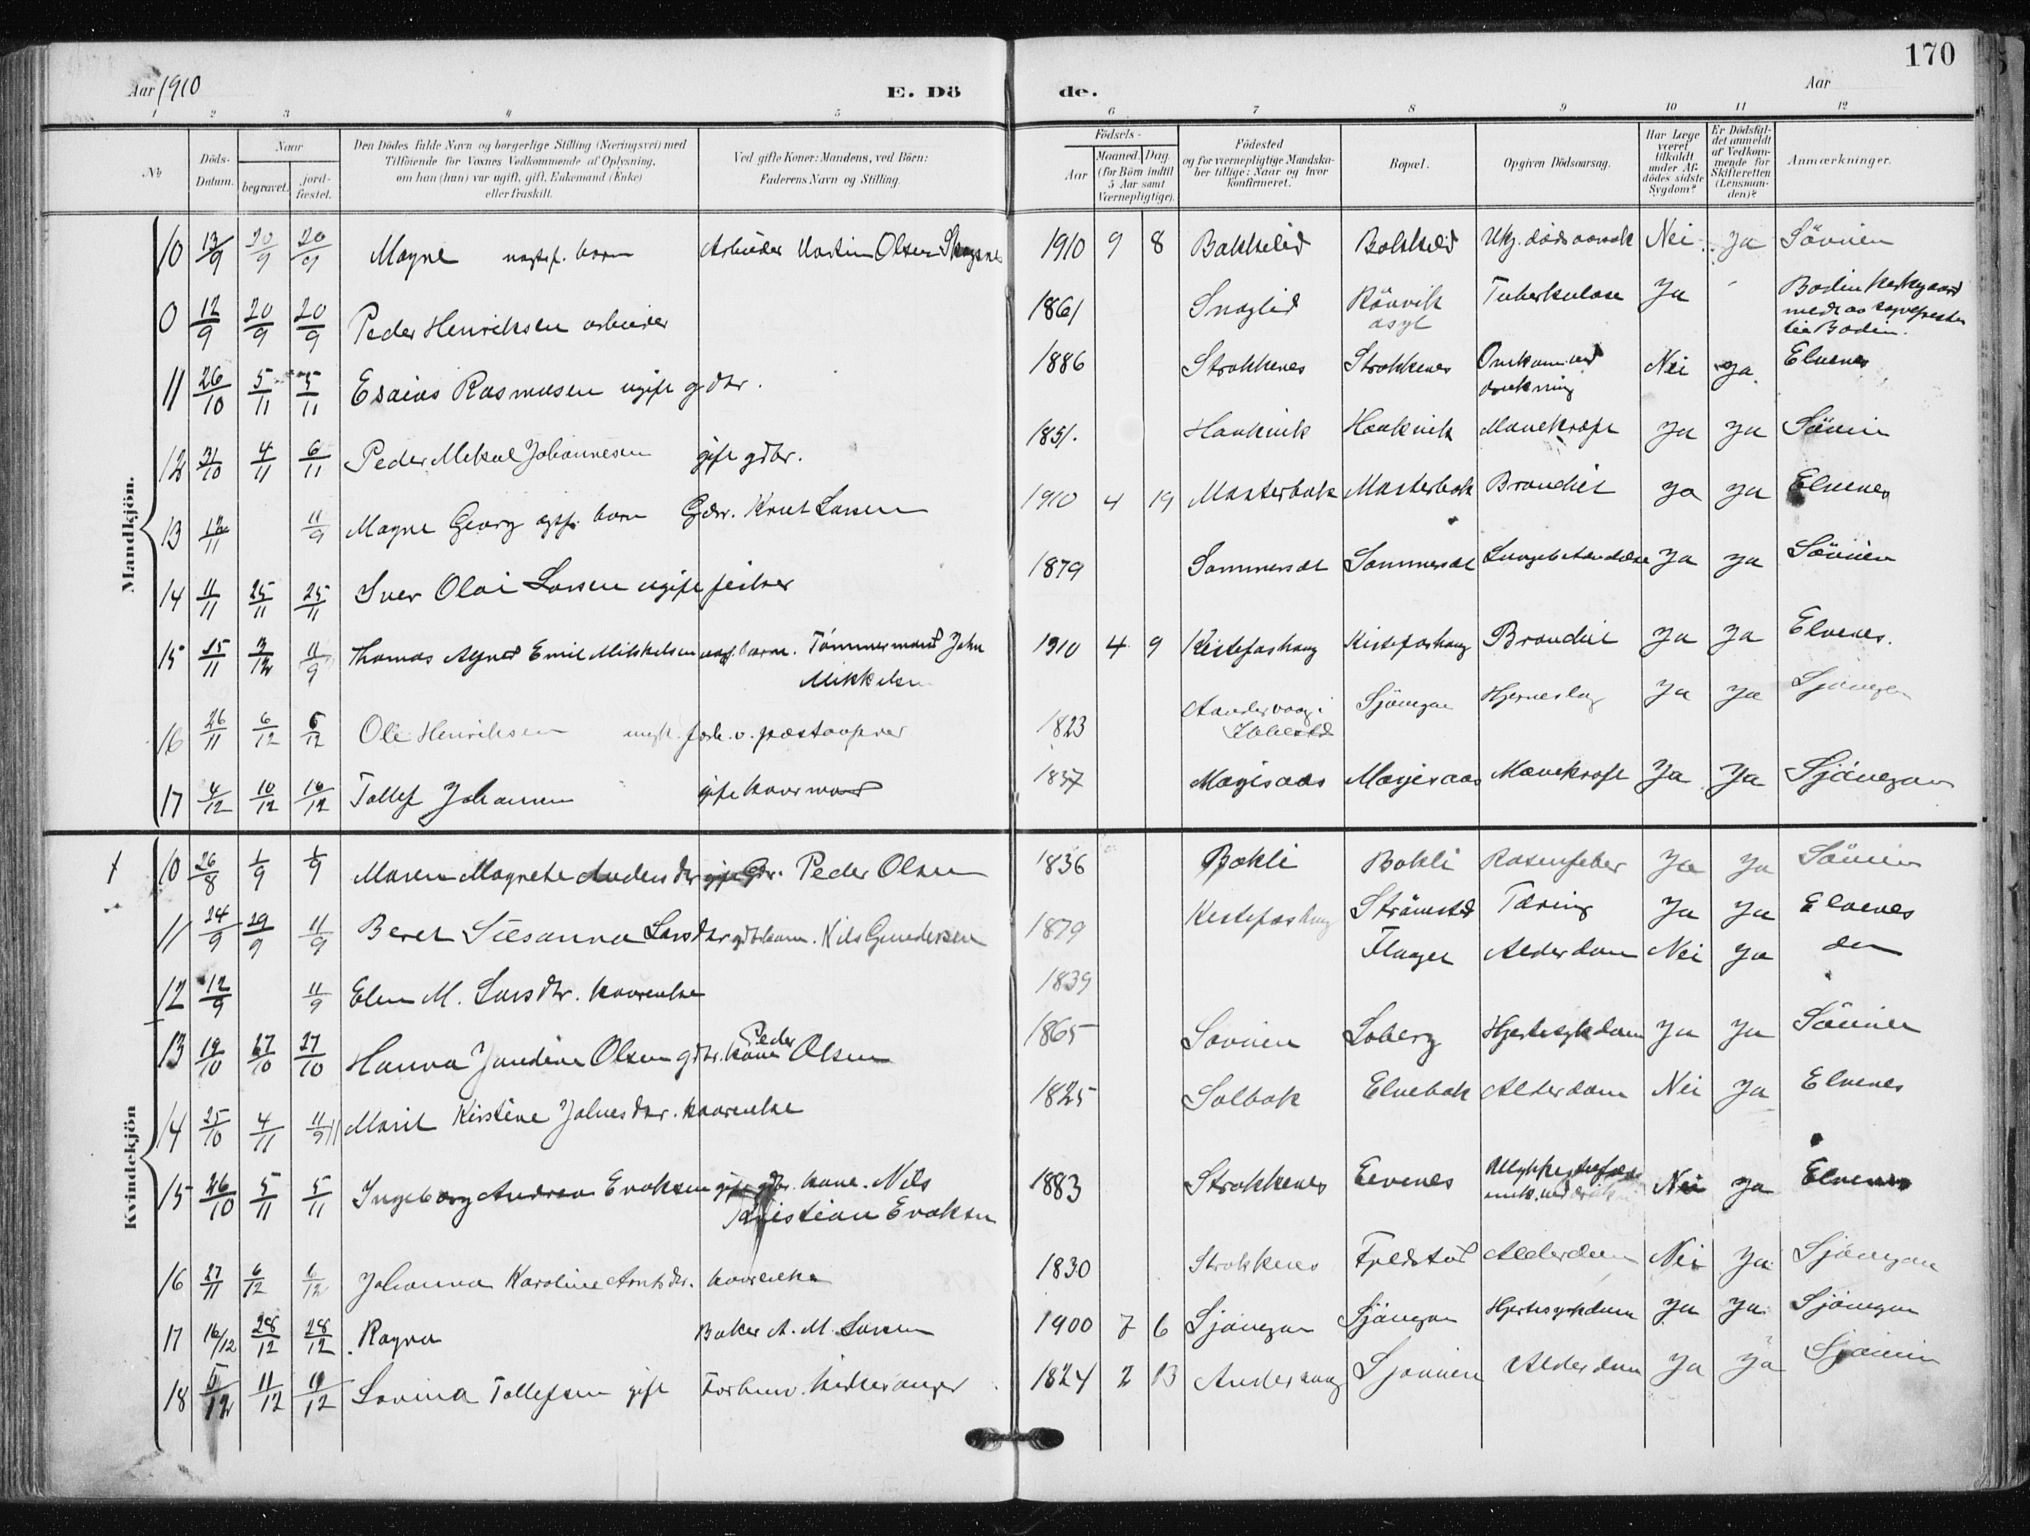 170
Aar 1910
E. Dö de.
Aar
1 2 3 4 5 6 7 8 9 10 11 12
No
Döds-Datum.
Naar
begravet.
jord-fæstet.
Den Dödes fulde Navn og borgerlige Stilling (Næringsvei) med
Tilföiende for Voxnes Vedkommende af Oplysning,
om han (hun) var ugift, gift, Enkemand (Enke)
eller fraskilt.
Ved gifte Koner: Mandens, ved Börn:
Faderens Navn og Stilling.
Födsels-
Aar
Maaned. Dag.
(for Börn indtil
5 Aar samt
Værnepligtige).
Födested
og for værnepligtige Mandska-
ber tillige: Naar og hvor
konfirmeret.
Bopæl.
Opgiven Dödsaarsag.
Har Læge
været
tilkaldt
under Af-
dödes sidste
Sygdom?
Er Dödsfal-
det anmeldt
af Vedkom-
mende for
Skifteretten
(Lensman-
den)?
Anmærkninger.
Mandkjön.
10 13/9 20/9 20/9 Magne born Arbeider Martin Olsen 1910 9 8 Bakkelid Bakkelid Ukj. dödsaarsak Nei Ja Sövvien
0 12/9 20/9 20/9 Peder Henriksen arbeider 1861 Snoglid Rönvik asyl Tuberkulose Ja Bodin Kirkegaard
tie Bodin.
11 26/10 5/11 5/11 Esaias Rasmusen ugift gdbr. 1886 Strokkenes Strokkenes Omkom ved drukning Nei Ja Elvenes
12 31/10 4/11 6/11 Peder Mikal Johannesen gift gdbr. 1851. Haukvik Haukvik Mavekræft Ja Ja Sövien
13 12/11 11/9 Magne Georg born Gdbr. Knut Larsen 1910 4 19 Mosterbak Mosterbak Brandiel Ja Ja Elvenes
14 11/11 25/11 25/11 Iver Olai Larsen ugift 1879 Sommerset Sommerset Ja Ja Sövvien
15 15/11 3/12 11/9 Thomas Agnes Emil Mikkelsen Tömmermand John
Mikkelsen 1910 4 9 Kistefoshaug Kistefoshaug Brandiel Ja Ja Elvenes.
16 26/11 6/12 6/12 Ole Henriksen 1823 Aandervaag i
Ibbestad Sjövegan Hjerneslag Ja Ja Sjövegan
17 4/12 10/12 10/12 Tollef Johansen gift 1857 Mogesaas Mogesaas Mavekræft Ja Ja Sjövegan
Kvindekjön
10 26/8 1/9 1/9 Maren Magrete Andersdtr gift Gdbr. Peder Olsen 1836 Bakli Bakli Rosenfeber Ja Ja Sövien
11 24/9 29/9 11/9 Beret Susanna Larsdtr Nils Gundersen 1879 Kistefoshaug Strömsted Tæring Ja Ja Elvenes
12 12/9 11/9 Elen M. Larsdtr. kaarenke 1839 Flaget Alderdom Nei Ja
13 19/10 27/10 27/10 Hanna Jandine Olsen gdbr. kone Peder Olsen 1865 Sovien Loberg Hjertesykdom Ja Ja Sövien
14 25/10 4/11 11/9 Marit Kirstine Johnesdtr. kaarenke 1825 Solbak Elvebak Alderdom Nei Ja Elvenes
15 26/10 5/11 5/11 Ingeborg Andrea Evaksen gift gdbr. kone. Nils
Kristian Evaksen 1883 Strokkenes Elvenes Nei Ja Elvenes
16 27/11 6/12 6/12 Johanna Karoline Arntsdtr. kaarenke 1830 Strokkenes Fjeldstad Alderdom Nei Ja Sjövegan
17 16/12 28/12 28/12 Ragna Baker A. M. Larsen 1900 7 6 Sjövegan Sjövegan Hjertesykdom Ja Ja Sjövegan
18 5/12 11/12 11/12 Lovina Tollefsen gift 1824 2 13 Sjövien Alderdom Ja Ja